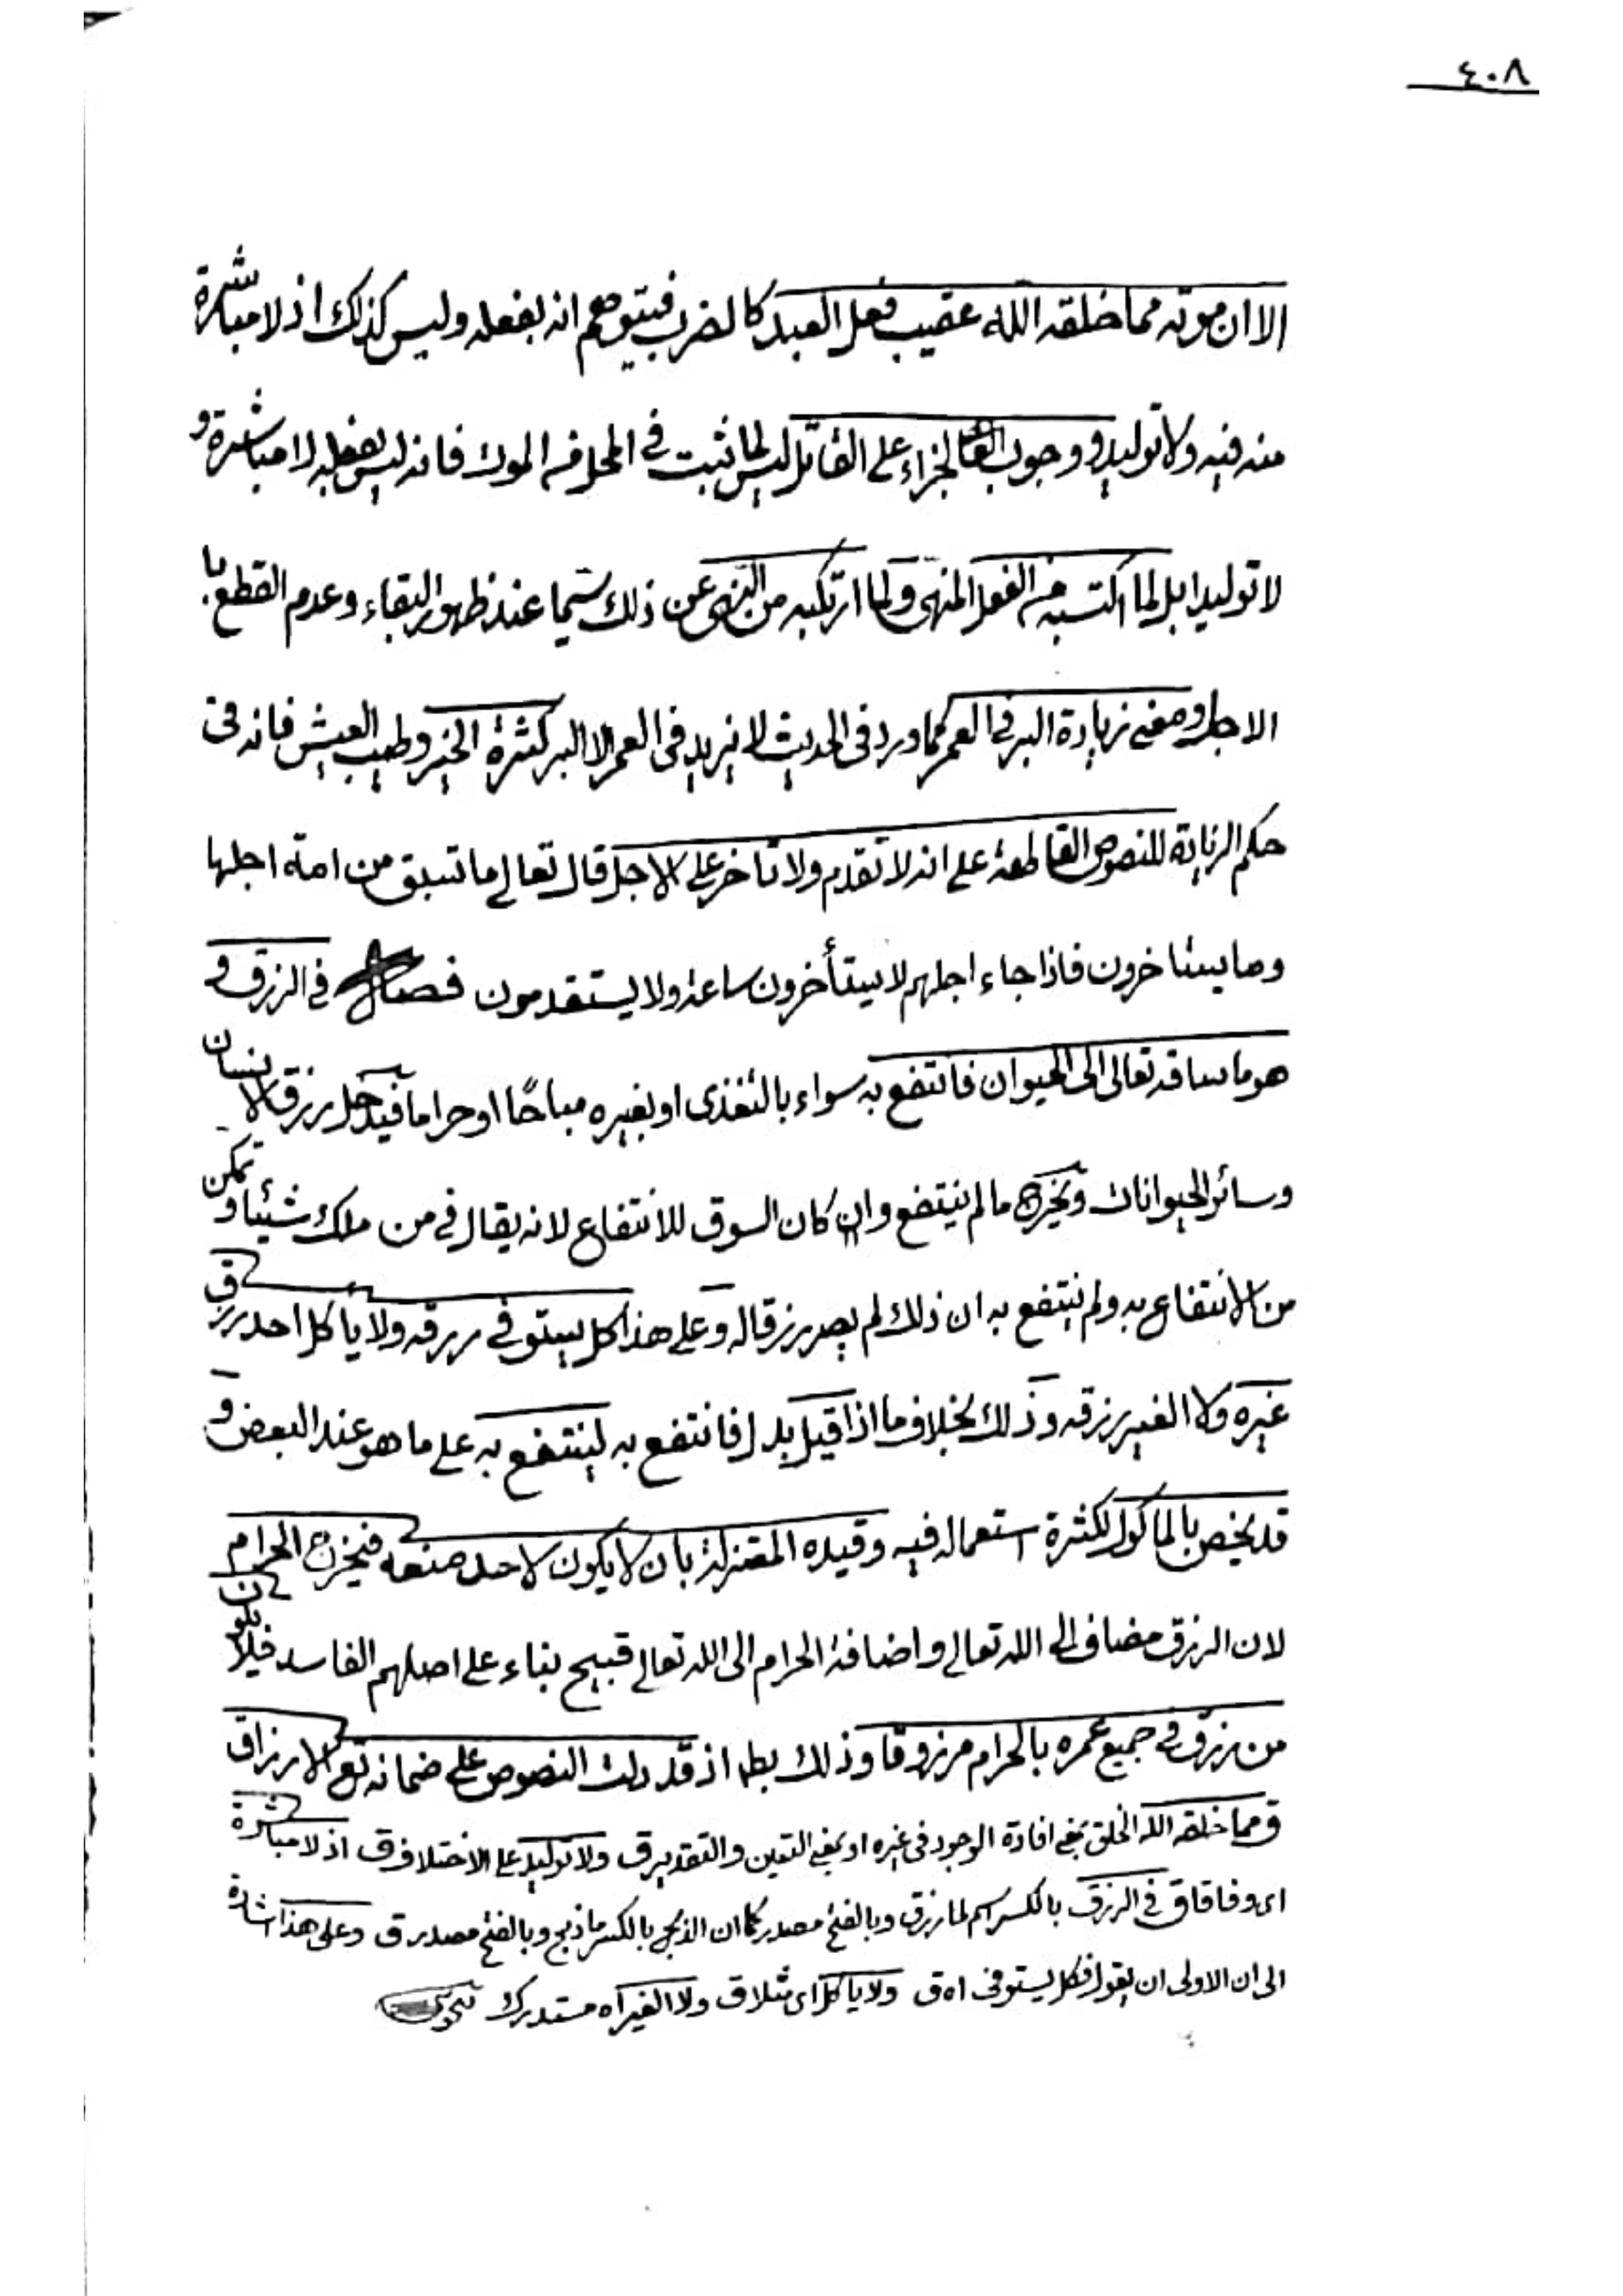 ٤٠٨
الا ان موته مما خلقه الله عقيب فعل العبد كالضرب فيتوهم انه بفعله وليس كذلك اذ لا مباشرة
منه فيه ولا توليد و وجوب الجزاء على القاتل ليس لما ثبت في المحل من الموت فانه ليس بفعله لا مباشرة و
لا توليدا بل لما اكتسبه من الفعل المنهي ولما ارتكبه من النهى عن ذلك سيما عند ظهور البقاء وعدم القطع با
الاجل ومعنى زيادة البر في العمر كما ورد في الحديث لا يزيد في العمر الا البر كثرة الخير وطيب العيش فانه في
حكم الزيادة للنصوص القاطعة على انه لا تقدم ولا تاخر على الاجل قال تعالى ما تسبق من امة اجلها
وما يستاخرون فاذا جاء اجلهم لا يستأخرون ساعة ولا يستقدمون فصل في الرزق و
هو ما ساقه تعالى الى الحيوان فانتفع به سواء بالتغذى او بغيره مباحًا او حراما فيدخل رزق الانسان
وسائر الحيوانات ويخرج ما لم ينتفع وان كان السوق للانتفاع لانه يقال في من ملك شيئا وتمكن
من الانتفاع به ولم ينتفع به ان ذلك لم يصر رزقا له وعلى هذا كل يستوفي رزقه ولا ياكل احد رزق
غيره ولا الغير رزقه وذلك بخلاف ما اذا قيل بدل فانتفع به لينتفع به على ما هو عند البعض و
قد يخص بالماكول لكثرة استعماله فيه وقيده المعتزلة بان لا يكون لاحد منعه فيخرج الحرام
لان الرزق مضاف الى الله تعالى واضافة الحرام الى الله تعالى قبيح بناء على اصلهم الفاسد فلا يكون
من رزق في جميع عمره بالحرام مرزوقا وذلك بط اذ قد دلت النصوص على ضمانه تع الارزاق
ق مما خلقه الله الخلق بمعنى افادة الوجود في غيره او بمعنى التعين والتقدير ق ولا توليد على الاختلاف ق اذ لا مباشرة
اى وفاقا ق في الرزق بالكسر اسم لما رزق وبالفتح مصدر كما ان الذبح بالكسر ما ذبح وبالفتح مصدر ق وعلى هذا اشارة
الى ان الاولى ان يقول فكل يستوفى اه ق ولا ياكل اى مثلا ق ولا الغير اه مستدرك